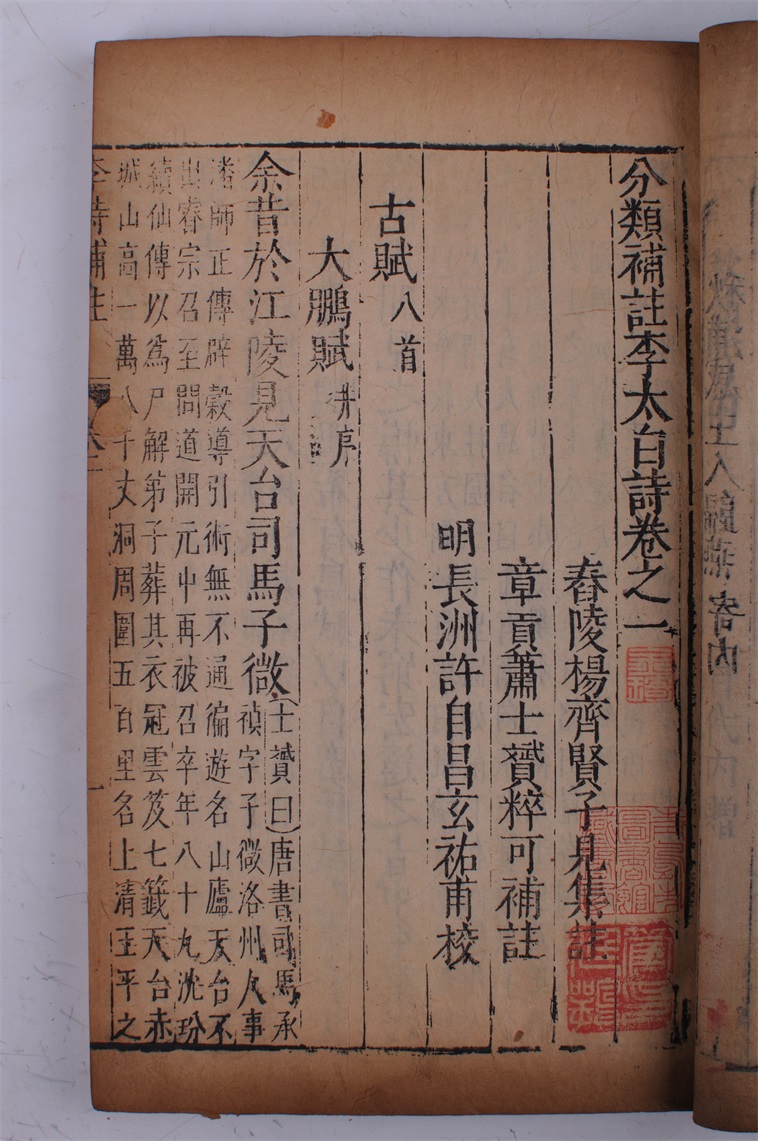 分類補註李太白詩卷之一
舂陵楊齊賢子見集註
章貢蕭士贇粹可補註
明長洲許自昌玄祐甫校
古賦八首
大鵬賦并序
余昔於江陵見天台司馬子微
(士贇曰)唐書司馬承
禎字子微洛州人事
潘師正傳辟穀導引術無不通徧遊名山廬天台不
出睿宗召至問道開元中再被召卒年八十九沈玢
續仙傳以為尸解弟子葬其衣冠雲笈七籤天台赤
城山高一萬八千丈洞周圍五百里名上清玉平之
李詩補註
卷一
一